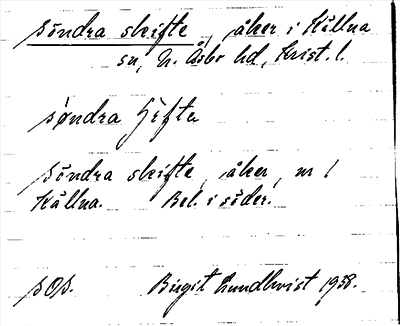 söndra skifte, åker i Källna
sn, N. Åsbo hd, Krist. l.
söndra
söndra skifte, åker, nr 1
Källna. Bel. i söder.
SOS. Birgit Lundkvist 1938.